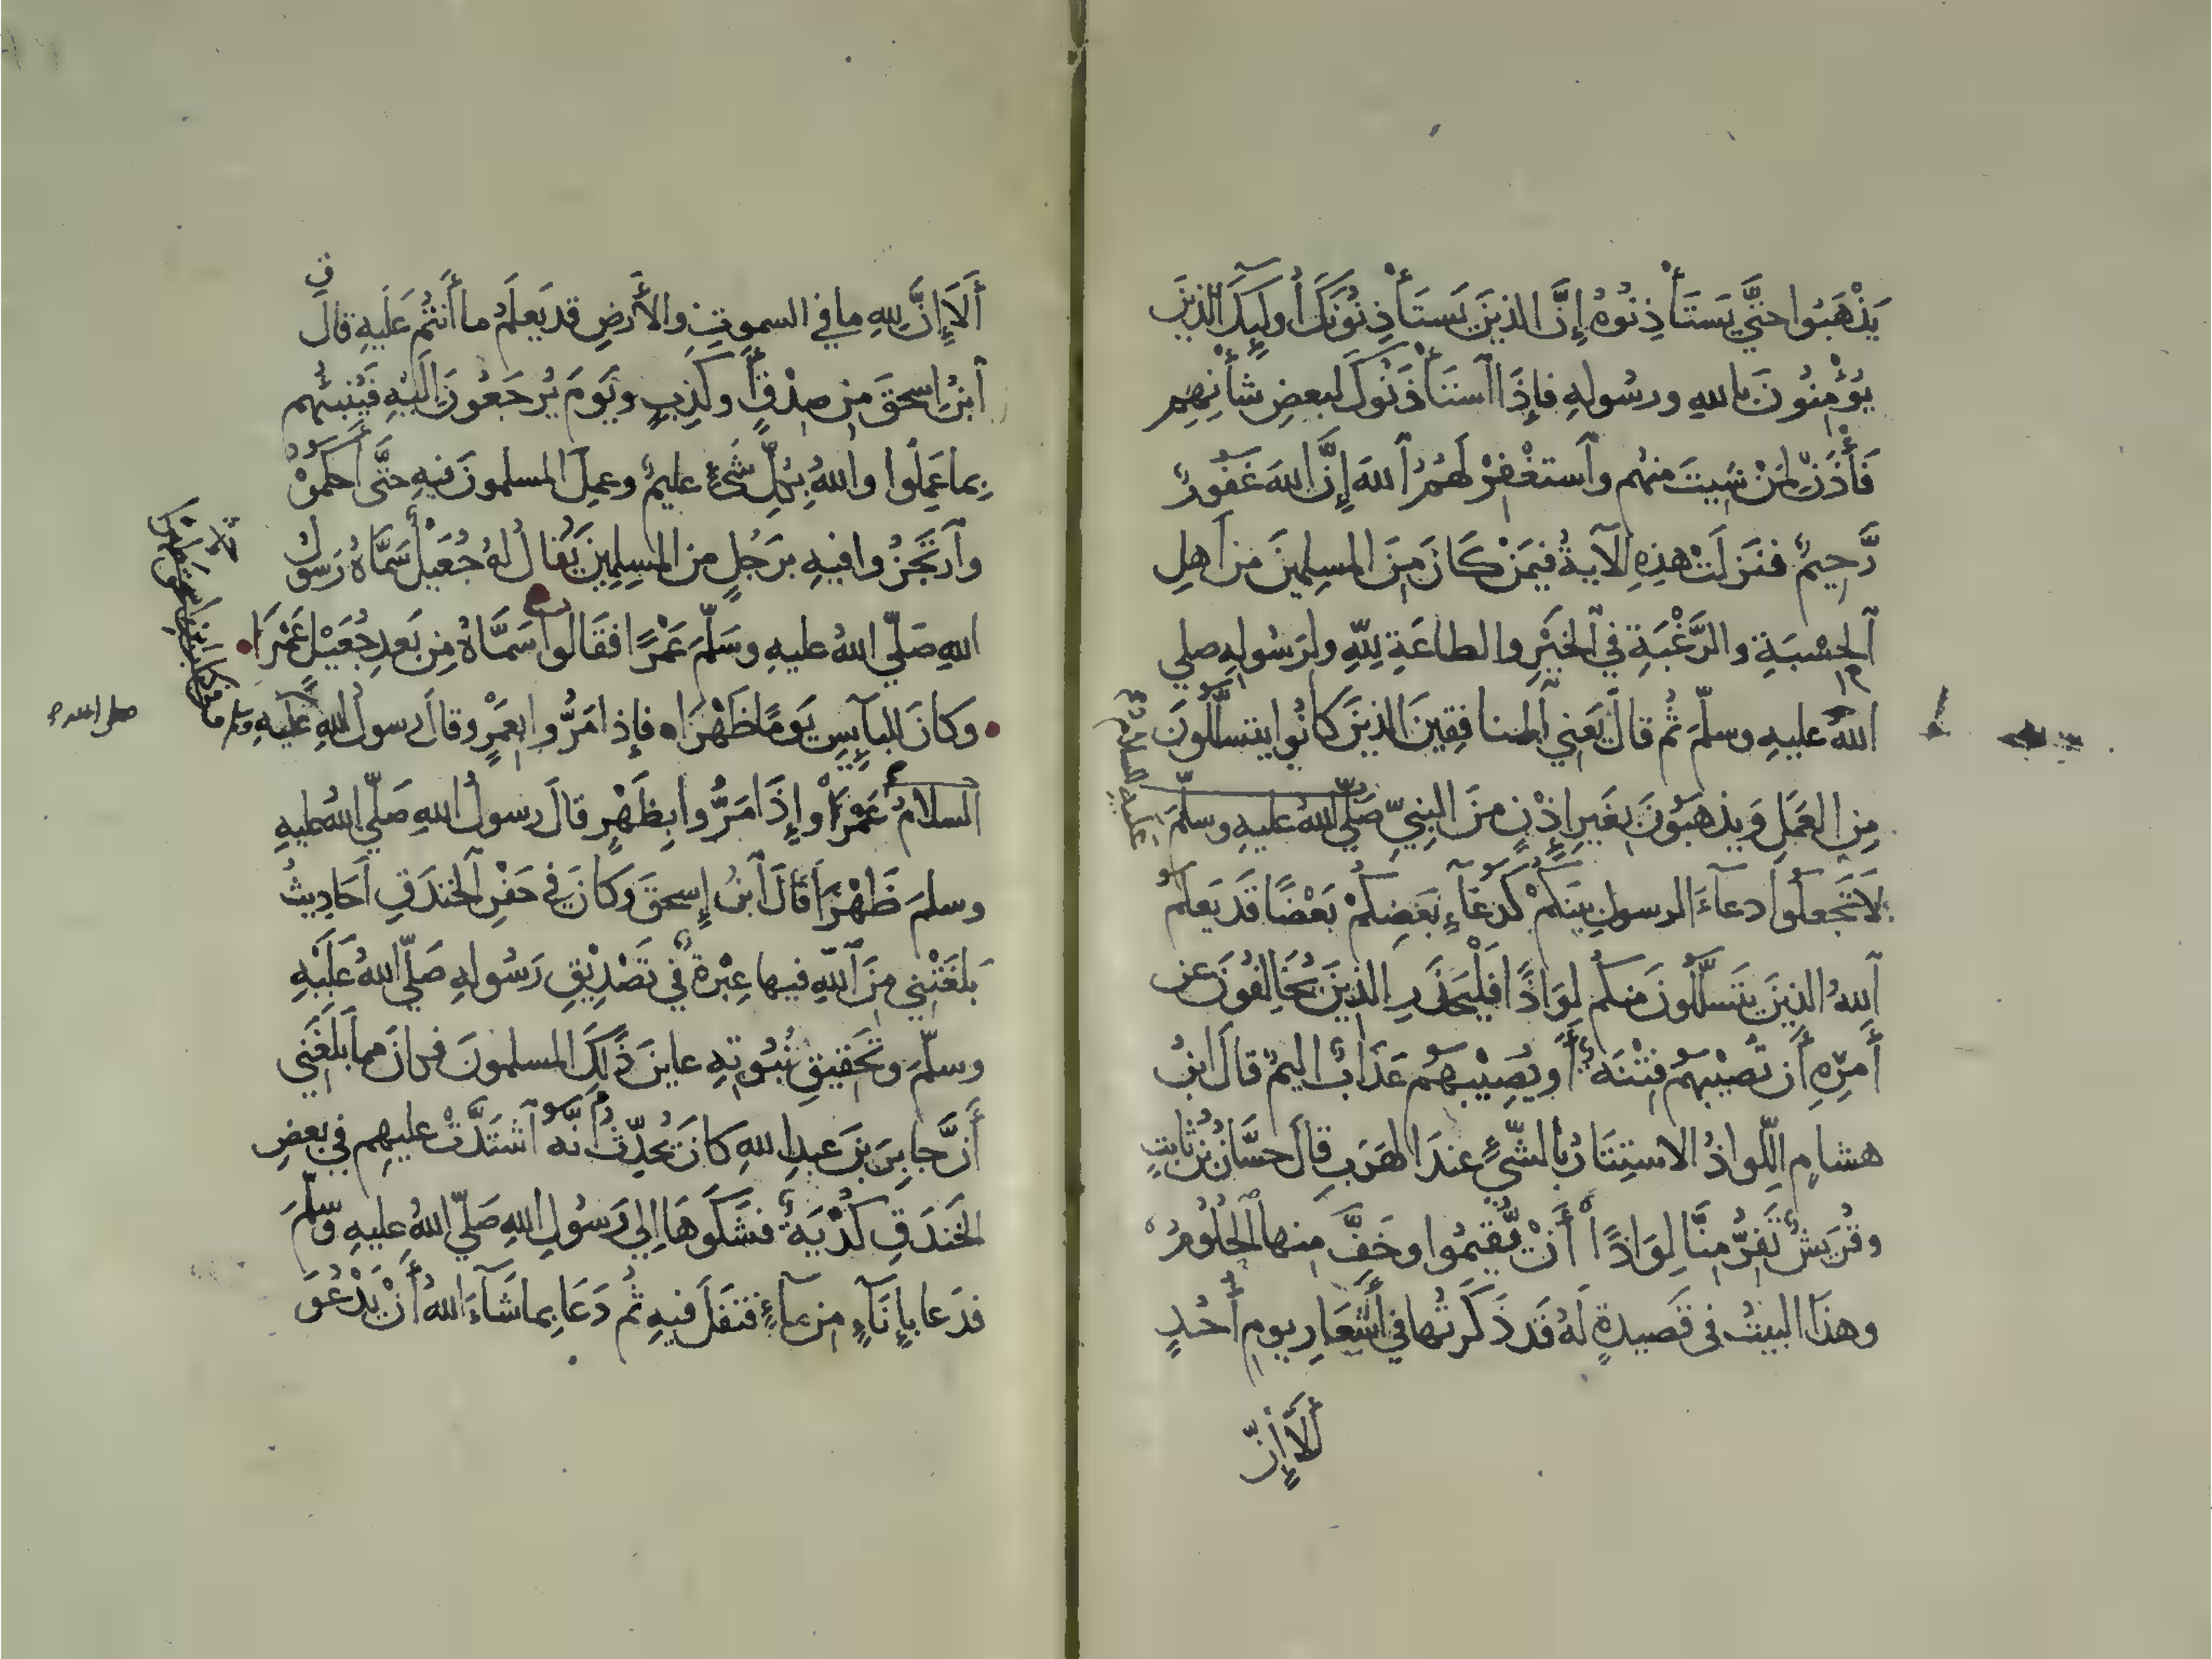 يَذْهَبُوا حَتَّى يَسْتَأْذِنُوهُ إِنَّ الذينَ يَستَأْذِنُونَكَ أُولَيِكَ الذينَ
يُؤْمِنُونَ باللهِ ورسُولهِ فإِذَا ٱسْتَأْذَنُوكَ لبعضِ شَأْنِهِم
فَأْذَنْ لِمَنْ شِيتَ منهُم وٱستَغْفِرْ لَهُمُ ٱللهَ إِنَّ اللهَ غَفُورٌ
رَّحِيمٌ فنَزَلَتْ هذِهِ الآيةُ فيمَنْ كَانَ مِنَ المسلِمينَ من أَهلِ
ٱلحِسْبَةِ والرَّغْبَةِ في ٱلخَيْرِ والطاعَةِ لِلّهِ ولِرَسُولِهِ صلي
اللهُ عليهِ وسلّمَ ثُم قالَ يَعني ٱلمنافِقِينَ الذينَ كانُوا يتسلَّلُونَ
مِن العَمَلِ وَيذهَبُونَ بغَيرِ إِذْنٍ منَ النبِيِّ صَلّي اللهُ عليهِ وسلّمَ
لَا تَجْعلُوا دعآءَ الرسولِ بينَكُمْ كَدُعَآءِ بَعْضِكُمْ بَعْضًا قَد يَعلَمُ
ٱللهُ الذينَ يتَسلَّلُونَ منكُم لِوَاذًا فَلْيَحْذَرِ الذينَ يُخَالِفُونَ عن
أَمرِهِ أَن تُصِيْبَهُمْ فِتْنَةٌ أَو يُصِيْبَهُم عَذَابٌ اليمٌ قالَ ابنُ
هشامٍ اللِّواذُ الاستِتَارُ بالشّيْءِ عندَ الهَرَبِ قالَ حسَّانُ بنُ ثابتٍ
وقُرَيشٌ تَفِرُّ مِنَّا لِوَاذًا أَنْ يُّقيمُوا وخَفَّ مِنها ٱلحُلُومُ
وهذَا البيتُ في قَصيدةٍ لَهُ قَد ذَكَرتُها في أَشْعَارِ يومِ أُحُدٍ
أَلَآ إِنَّ
عليه السلام
أَلَا إِنَّ لِلهِ ما في السموتِ والأَرضِ قد يَعلَمُ ما أَنتُم عَلَيهِ قالَ
ٱبنُ إِسحقَ مِن صِدْقٍ أَو كَذِبٍ ويَومَ يُرجَعُونَ إِلَيْهِ فَيُنبِئُهم
بِما عَمِلُوا واللهُ بِكُلِّ شَيْءٍ عليمٌ وعمِلَ المسلمونَ فيهِ حتَّى أَحكَمُوْهُ
وٱرتَجَزُوا فيهِ برَجُلٍ من المسلِمِينَ يُقالُ لهُ جُعَيْلٌ سَمَّاهُ رَسولُ
اللهِ صَلّي اللهُ عليهِ وسَلّمَ عَمْرًا فقَالُوا سَمَّاهُ مِن بَعدِ جُعَيْلٍ عَمْرَا
وكانَ للبآيِسِ يَومًا ظَهْرَا فإِذا مَرُّوا بعَمْرٍو قالَ رسولُ اللهِ عليهِ
السلامُ عَمْرَا وإِذَا مَرُّوا بِظَهْرٍ قالَ رسولُ اللهِ صَلّي اللهُ عليهِ
وسلمَ ظَهْرَا قَالَ ٱبنُ إِسحقَ وكانَ في حَفْرِ ٱلخندَقِ أَحَادِيثُ
بَلَغَتْنِي مِنَ ٱللّهِ فيها عِبْرَةٌ في تَصْدِيْقِ رَسُولِهِ صَلّي اللهُ عَلَيْهِ
وسلّمَ وتَحْقيقِ نُبُوتهِ عاينَ ذَلِكَ المسلمونَ فكانَ مما بَلَغَني
أَنَّ جابِرَ بنَ عبدِ اللهِ كانَ يُحَدِّثُ أَنَّهُ ٱشتَدَّتْ عليهِم في بعضِ
الخَندَقِ كُدْيَةٌ فشَكَوهَا إِلي رَسُولِ اللهِ صَلّي اللهُ عليهِ وسلّمَ
فدَعا بإِنَآءٍ مِن مآءٍ فتفَلَ فيهِ ثُم دَعَا بِما شَآءَ اللهُ أَنْ يَدْعُوَ